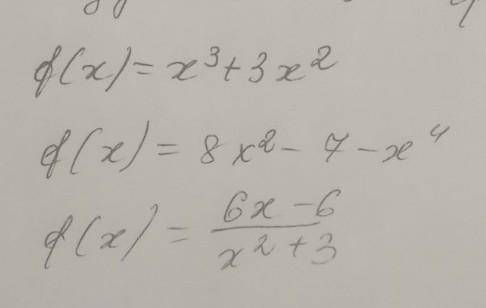 f(x) = x³ + 3x²
f(x) = 8x² - 7 - x⁴
f(x) = (6x - 6)/(x² + 3)